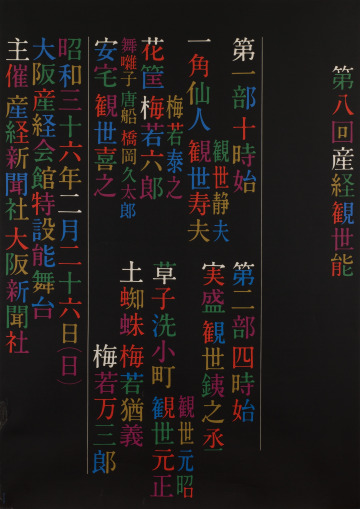 第八回産経観世能
第一部十時始
一角仙人 観世寿夫
観世静夫
花筐 梅若六郎
梅若泰之
舞囃子 唐船 橋岡久太郎
安宅 観世喜之
第二部四時始
実盛 観世銕之丞
草子洗小町 観世元正
観世元昭
土蜘蛛 梅若猶義
梅若万三郎
昭和三十六年二月二十六日(日)
大阪産経会館特設能舞台
主催 産経新聞社 大阪新聞社